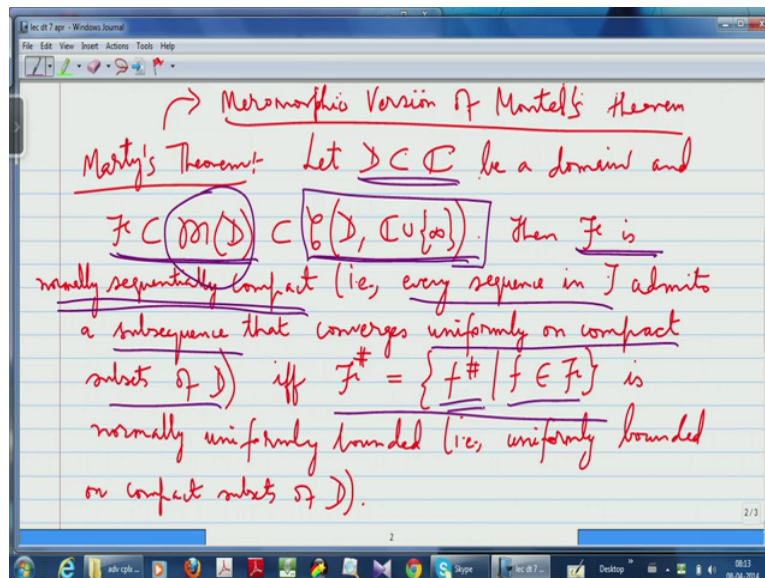 lec dt 7 apr - Windows Journal
File Edit View Insert Actions Tools Help
→ Meromorphic Version of Montel's theorem
Marty's Theorem:- Let D ⊂ ℂ be a domain and
ℱ ⊂ 𝔐(D) ⊂ 𝒞(D, ℂ ∪ {∞}). Then ℱ is
normally sequentially compact (i.e., every sequence in ℱ admits
a subsequence that converges uniformly on compact
subsets of D) iff ℱ^# = {f^# | f ∈ ℱ} is
normally uniformly bounded (i.e., uniformly bounded
on compact subsets of D).
2/3
2
adv cplx ... Skype lec dt 7 ... Desktop » 08:13
08-04-2014